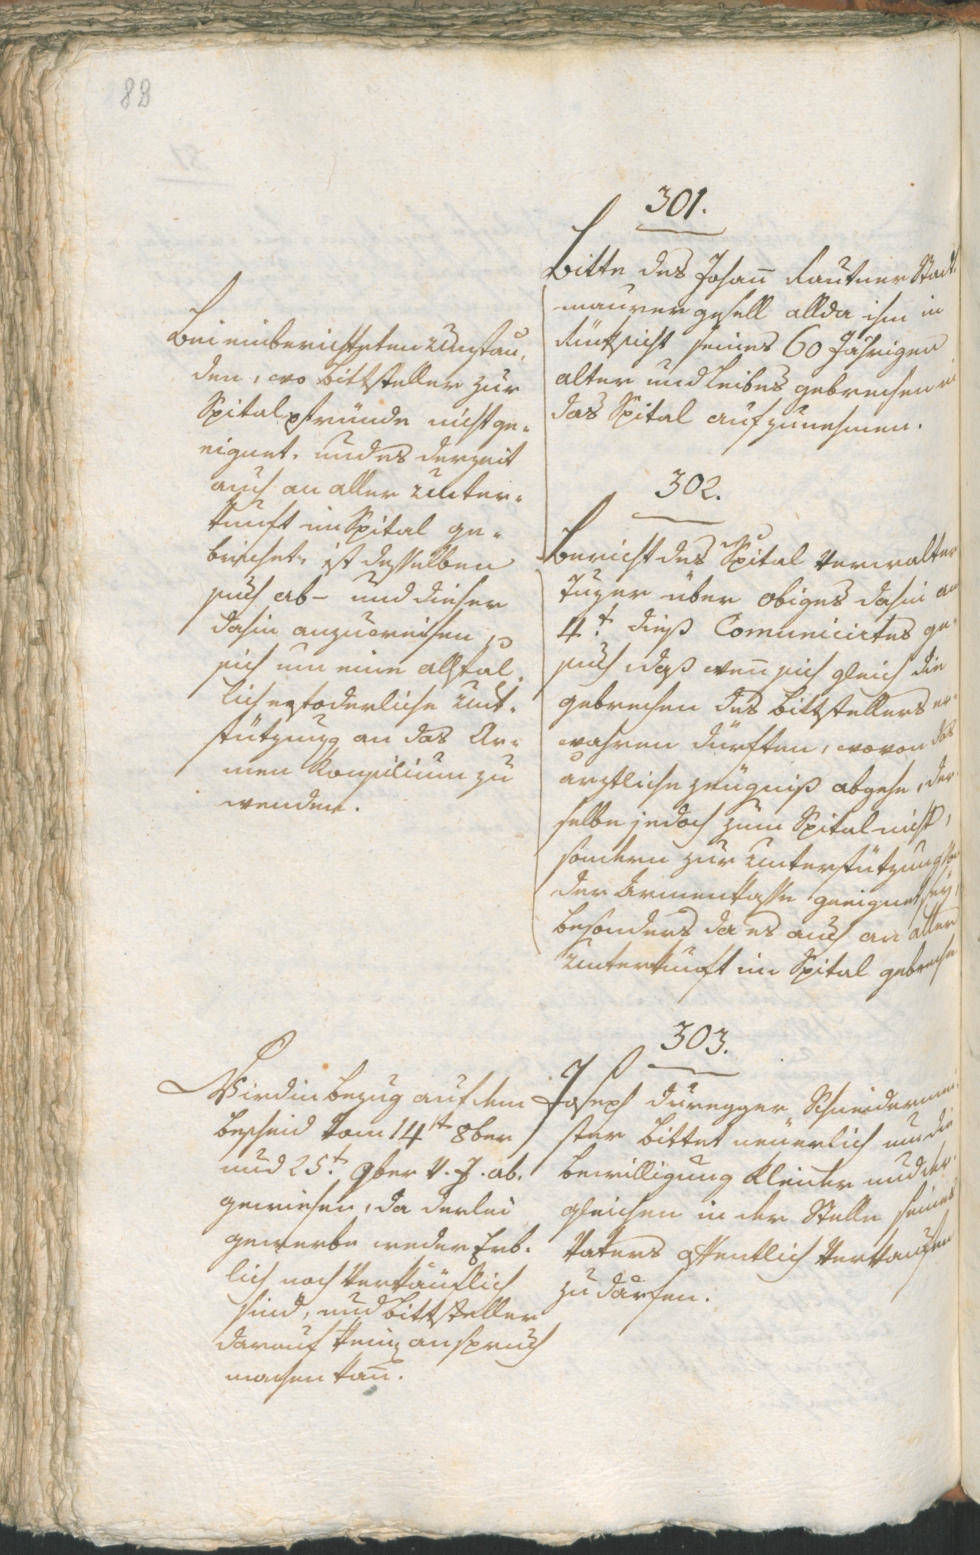 88
301.
Bitte des Johan̄ Rautner Stadt
maurergesell allda ihn in
Rücksicht seines 60 Jährigen
alter und Leibes gebrechen in
das Spital aufzunehmen.
Bei einberichteten Umstän,
den, wo Bittsteller zur
Spitalpfründe nicht ge,
eignet, und es derzeit
auch an aller Unter,
kunft im Spital ge,
bricht, ist desselben
such ab- und dieser
dahin anzuweisen,
sich um eine allfäl,
lich erfoderliche Unt,
stützung an das Ar,
men Konsilium zu
wenden.
302.
Bericht des Spital Verwalter
über obiges dahin am
4t. dieß Comunicirtes ge,
such, daß wen̄ sich gleich die
gebrechen des Bittstellers er,
wahren dürften, wovon das
ärztliche Zeugniß abgehe, der,
selbe jedoch zum Spital nicht,
sondern zur Unterstützung von
der Armenkasse geeignet sey,
besonders da es auch an aller
Unterkunft im Spital gebreche
303.
Joseph Düregger Schneidermei,
ster bittet neuerlich um die
Bewilligung Kleider und der,
gleichen in der Stelle seines
Vaters öffentlich verkaufen
zu dürfen.
Wird in Bezug auf dem
Bescheid vom 14t 8ber
und 25t. 9ber v. J. ab,
gewiesen, da derlei
gewerbe weder Erb,
lich noch Verkäuflich
sind, und Bittsteller
darauf kein anspruch
machen kan̄.